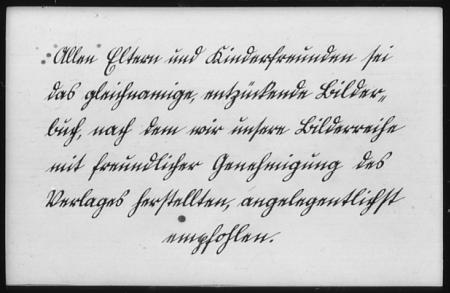 Allen Eltern und Kinderfreunden sei
das gleichnamige, entzückende Bilder„
buch, nach dem wir unsere Bilderreihe
mit freundlicher Genehmigung des
Verlages herstellten, angelegentlichst
empfohlen.